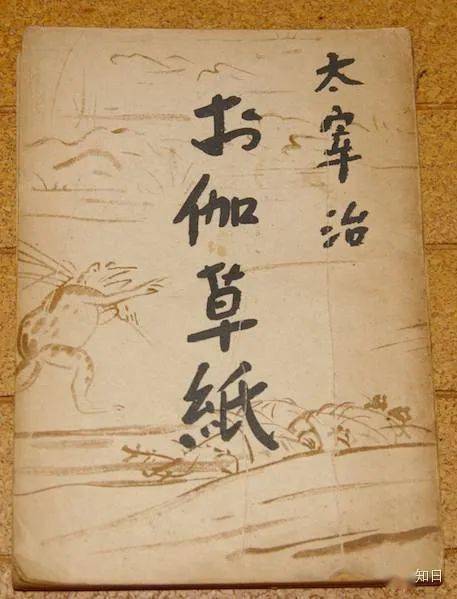 太宰治
お伽草紙
知日